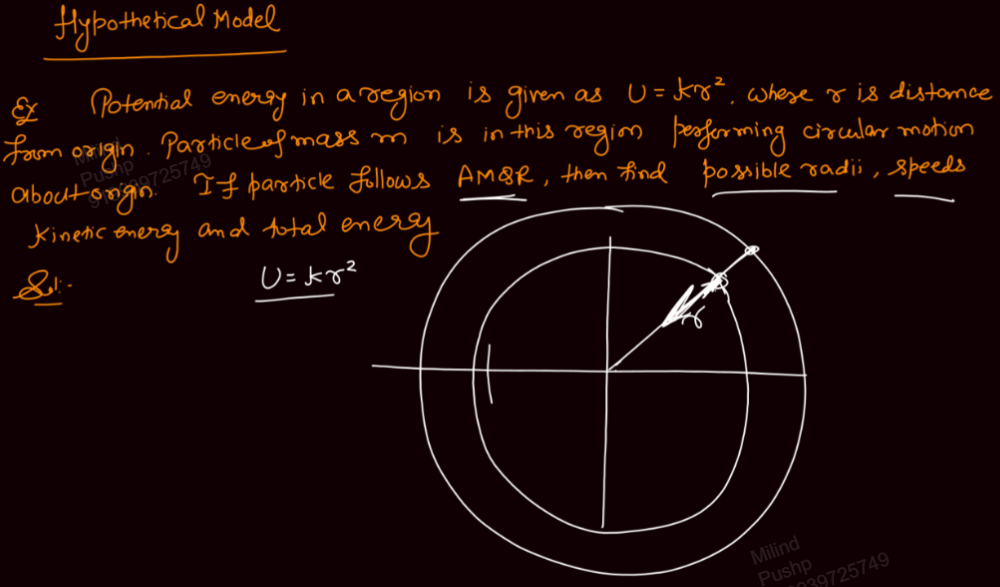 Hypothetical Model
Ex Potential energy in a region is given as U = kr², where r is distance
from origin. Particle of mass m is in this region performing circular motion
about origin. If particle follows AMQR, then find possible radii, speeds
Kinetic energy and total energy
Sol:-
U = kr²
r
Milind
Pushp
9039725749
Milind
Pushp
9039725749